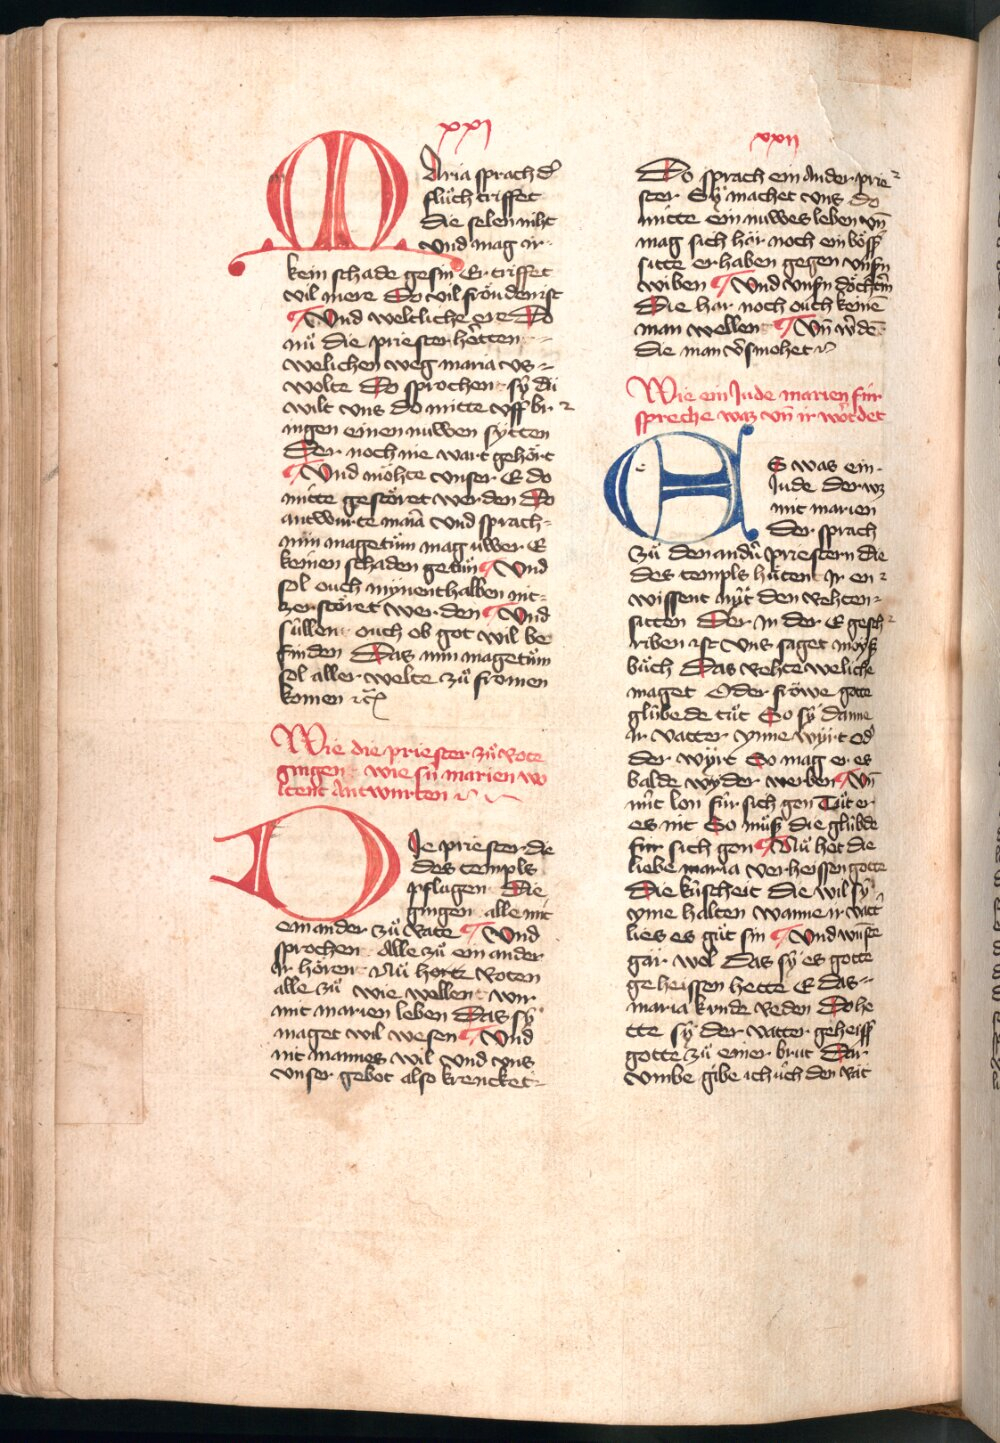 xxj
Maria sprach dˢ
flůch triffet
die selen niht
vnd mag ir
kein schade gesin Er triffet
vil mere Do vil fröuden ist
¶ Vnd weltliche ere Do
nů die priester hetten
welichen weg maria vs
wolte Do sprochen sÿ dü
wilt vns do mitte vff br
ingen einen nuwen sytten
Der noch nie wart gehört
¶ Vnd möhte vnser E do
mitte gestöret werden Do
antwurte maīa vnd sprach
min magetům mag uwer E
keinen schaden getůn ¶ Vnd
sol ouch minenthalben nit
zer störet wer den ¶ Vnd
süllent ouch ob got wil be
finden Das min magetům
sol aller welte zů fromen
komen
Wie die priester zů Rote
gingen wie sü marien wo
ltent Antwurten
Die priester de
des templs
pflagen Die
gingen alle mit
ein ander zů Rate ¶ Vnd
sprochen Alle zů ein ander
Ir hören Nů hortt Roten
alle zů wie wellent wir
mit marien leben Das sÿ
maget wil wesen ¶ Vnd
nit mannes wil vnd vns
vnser gebot also krencket
xxij
Do sprach ein Ander prie
ster Sÿ machet vns do
mitte ein nuwes leben vn̄
mag sich har noch ein böss
sitte erhaben gegen vnsn
wiben ¶ Vnd vnsn döchtˢn
Die har noch ouch keinē
man wellent ¶ Vn̄ wˢdē
die man vˢsmohet
Wie ein Jude marien für
spreche waz vn̄ ir wort det
Es was ein
Jude der wz
mit marien
Der sprach
zů den andˢn priestern die
des templs hůtent Ir en
wissent nüt den Rehten
sitten Der in der E gesch
riben ist Vns saget moyss
bůch Das Rehte weliche
maget Oder fröwe gotte
glübede tůt So sÿ danne
ir vatter ynne wÿrt odˢ
der wÿrt So mag er es
balde wyder werben ¶ Vn̄
nit lon für sich gen Tůt er
es nit So můss die glübde
für sich gon ¶ Nů het die
liebe maria verheissen gotte
Die küscheit die wil sÿ
yme halten wanne ir vattˢ
lies es gůt sin ¶ Vnd wuste
gar wol Das sÿ es gotte
geheissen hette E das
maria kunde Reden Do he
tte sÿ der vatter geheiss
gotte zů einer brut Dar
vmbe gibe ich üch den Rat